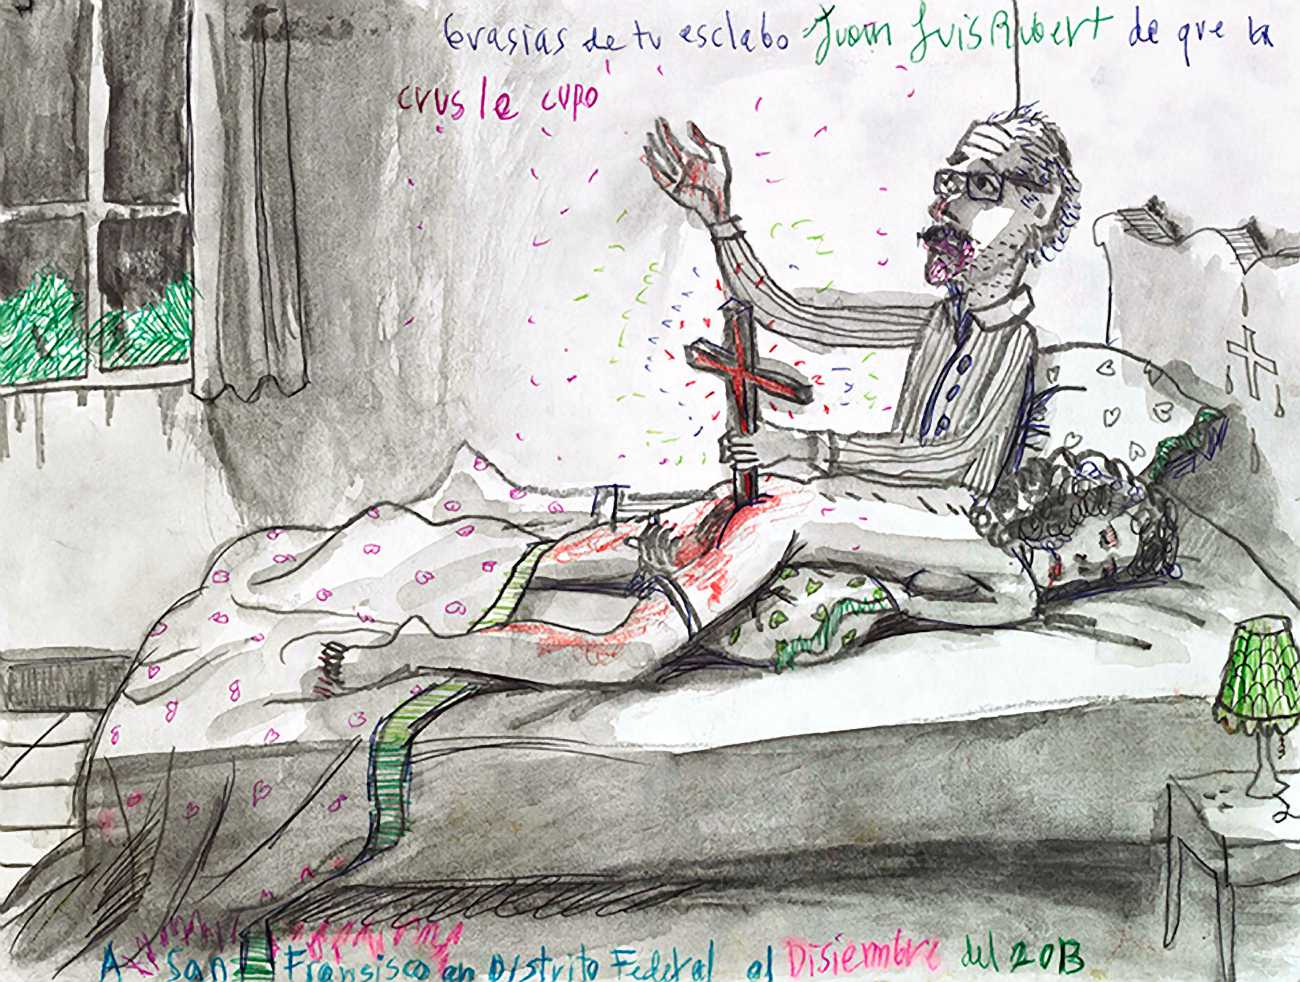 Grasias de tu esclabo Juan Luis Rubert de que la
crus le cupo
A San Fransisco en Distrito Federal al Disiembre del 2013